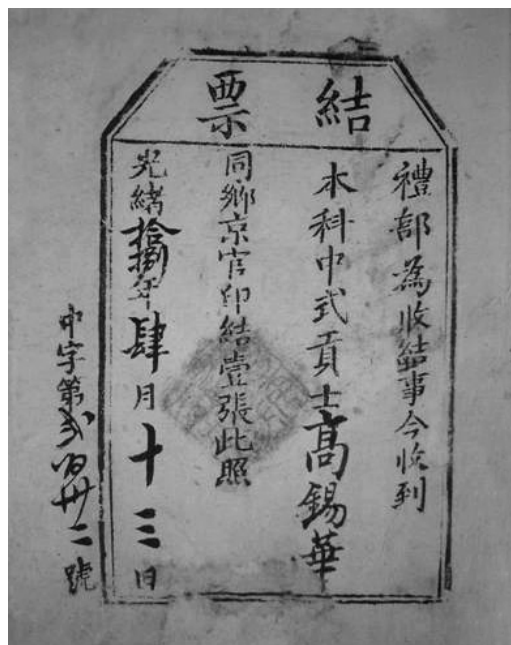 結票
禮部為收結事今收到
本科中式貢士高錫華
同鄉京官印結壹張此照
光緒拾捌年肆月十三日
中字第貳百卅二號